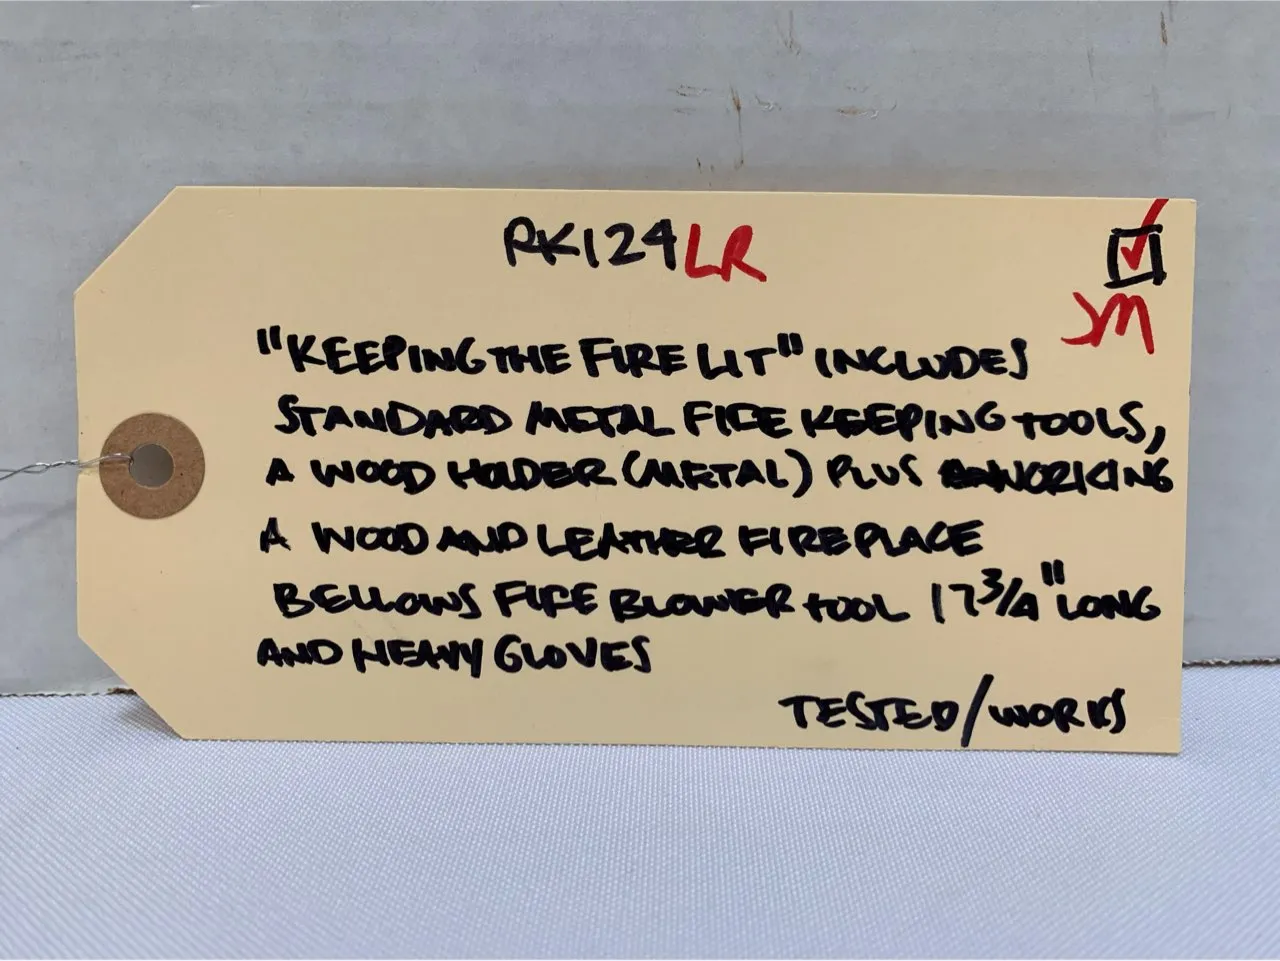 RK124LR
JM
"KEEPING THE FIRE LIT" INCLUDES
STANDARD METAL FIRE KEEPING TOOLS,
A WOOD HOLDER (METAL) PLUS WORKING
A WOOD AND LEATHER FIREPLACE
BELLOWS FIRE BLOWER TOOL 17 3/4" LONG
AND HEAVY GLOVES
TESTED/WORKS